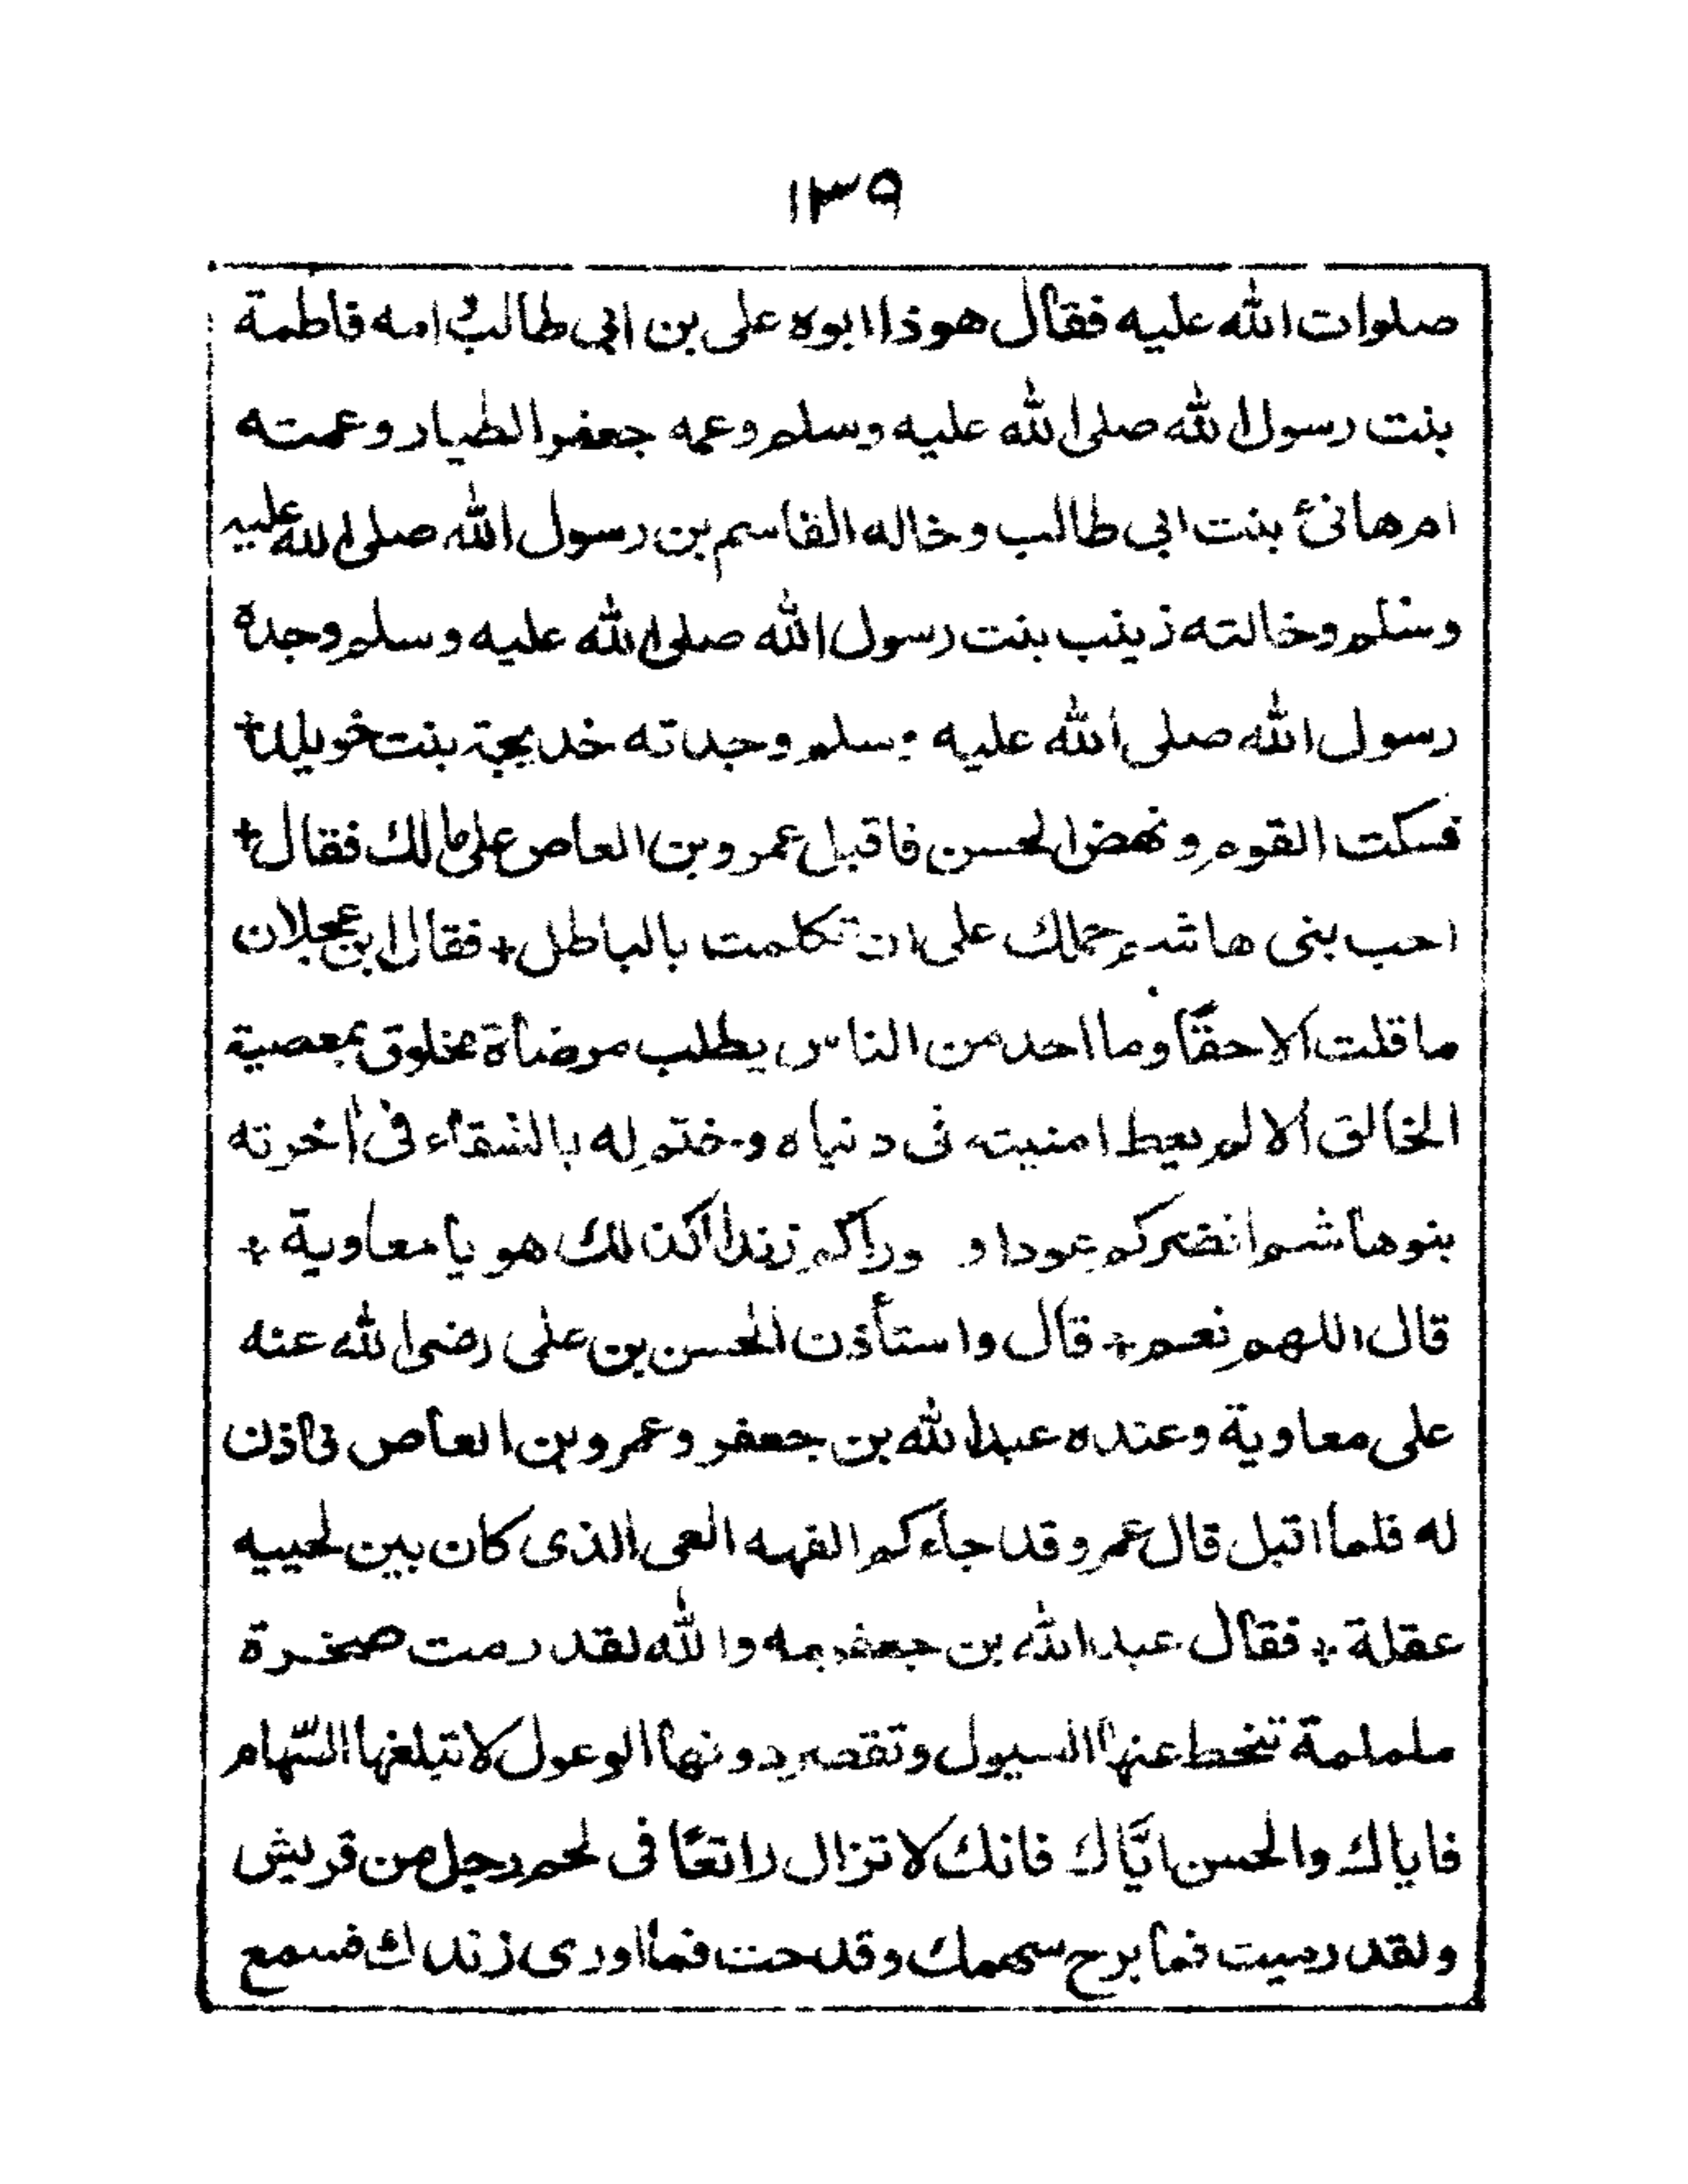 ١٣٩
صلوات الله عليه فقال هوذا ابوه على بن ابي طالب و امه فاطمة
بنت رسول الله صلى الله عليه وسلم وعمه جعفر الطيار وعمته
ام هانئ بنت ابى طالب وخاله القاسم بن رسول الله صلى الله عليه
وسلم وخالته زينب بنت رسول الله صلى الله عليه وسلم وجده
رسول الله صلى الله عليه وسلم وجدته خديجة بنت خويلد +
فسكت القوم ونهض الحسن فاقبل عمرو بن العاص على مالك فقال +
احب بنى هاشم حملك على ان تكلمت بالباطل + فقال ابن عجلان
ما قلت الا حقًا وما احد من الناس يطلب مرضاة مخلوق بمعصية
الخالق الا لم يعط امنيته فى دنياه وختم له بالشقاء فى أخرته
بنو هاشم انضركم عودا و وراكم زندا اكذلك هو يا معاوية +
قال اللهم نعم + قال واستأذن الحسن بن على رضى الله عنه
على معاوية وعنده عبد الله بن جعفر وعمرو بن العاص فاذن
له فلما اقبل قال عمرو قد جاءكم الفهه العى الذى كان بين لحييه
عقلة + فقال عبد الله بن جعفر مه والله لقد رمت صخرة
ململمة تنحط عنها السيول وتقصر دونها الوعول لا تبلغها السّهام
فاياك والحسن ايَّاك فانك لا تزال راتعًا فى لحم رجل من قريش
ولقد رميت فما برح سهمك وقدحت فما اورى زندك فسمع